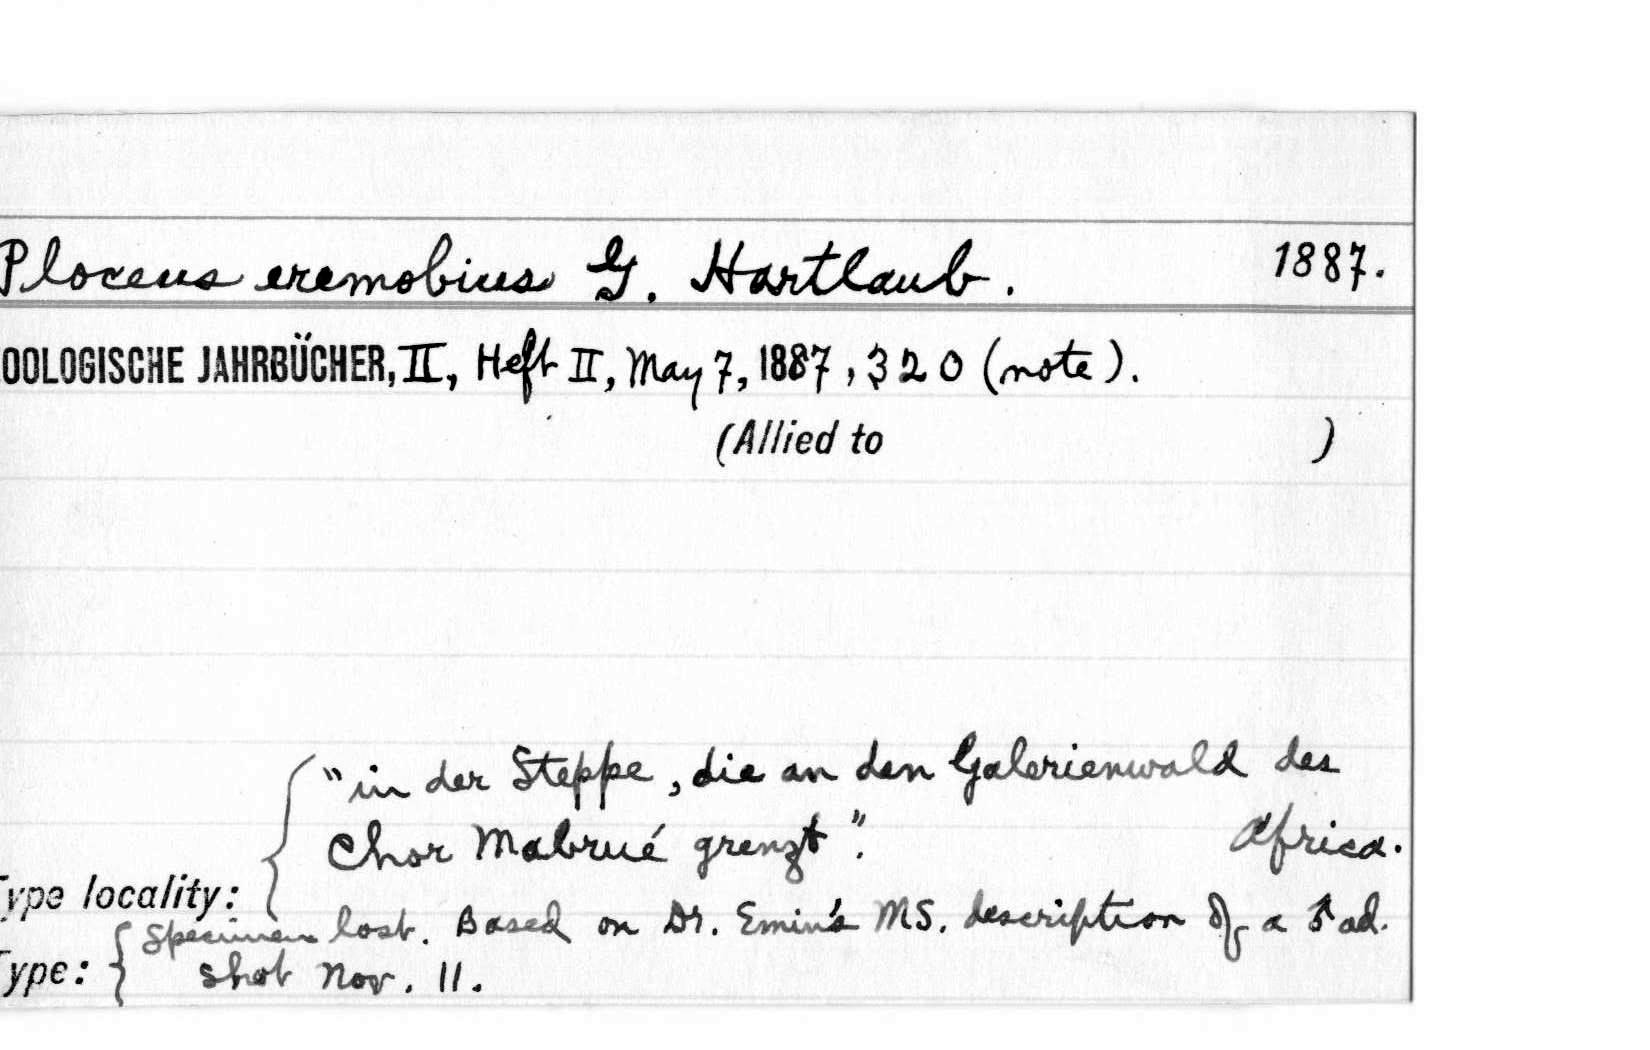 Ploceus eremobius G. Hartlaub. 1887.
OOLOGISCHE JAHRBÜCHER, II, Heft II, May 7, 1887, 320 (note).
(Allied to )
"in der Steppe, die an den Galerienwald des
Chor Mabrué grenzt". Africa.
Type locality:
Specimen lost. Based on Dr. Emin's MS. description of a ♂ ad.
Type: shot Nov. 11.